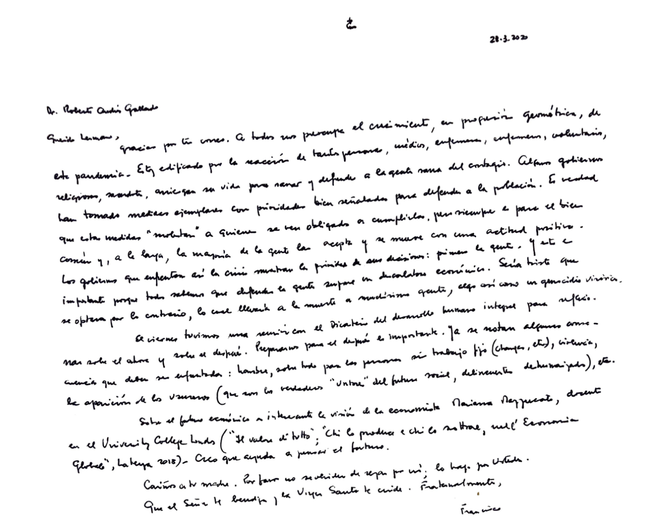 28.3.2020
Dr. Roberto Andrés Gallardo
Querido hermano,
gracias por tu correo. A todos nos preocupa el crecimiento, en progresión geométrica, de
esta pandemia. Estoy edificado por la reacción de tantas personas, médicos, enfermeras, enfermeros, voluntarios,
religiosos, sacerdotes, arriesgan su vida para sanar y defender a la gente sana del contagio. Algunos gobiernos
han tomado medidas ejemplares con prioridades bien señaladas para defender a la población. Es verdad
que estas medidas "molestan" a quienes se ven obligados a cumplirlas, pero siempre es para el bien
común y, a la larga, la mayoría de la gente las acepta y se mueve con una actitud positiva.
Los gobiernos que enfrentan así la crisis muestran la prioridad de sus decisiones: primero la gente. Y esto es
importante porque todos sabemos que defender la gente supone un descalabro económico. Sería triste que
se optara por lo contrario, lo cual llevaría a la muerte a muchísima gente, algo así como un genocidio virósico.
El viernes tuvimos una reunión con el Dicasterio del desarrollo humano integral para reflexio-
nar sobre el ahora y sobre el después. Prepararnos para el después es importante. Ya se notan algunas conse-
cuencias que deben ser enfrentadas: hambre, sobre todo para las personas sin trabajo fijo (changas, etc), violencia,
la aparición de los usureros (que son la verdadera "peste" del futuro social, delincuentes deshumanizados), etc.
Sobre el futuro económico es interesante la visión de la economista Mariana Mazzucato, docente
en el University College London ("Il valore di tutto", "Chi lo produce e chi lo sottrae, nell' Economia
Globale", Laterza 2018)- Creo que ayuda a pensar el futuro.
Cariños a tu madre. Por favor no se olviden de rezar por mí; lo hago por Ustedes.
Que el Señor te bendiga y la Virgen Santa te cuide. Fraternalmente,
Francisco